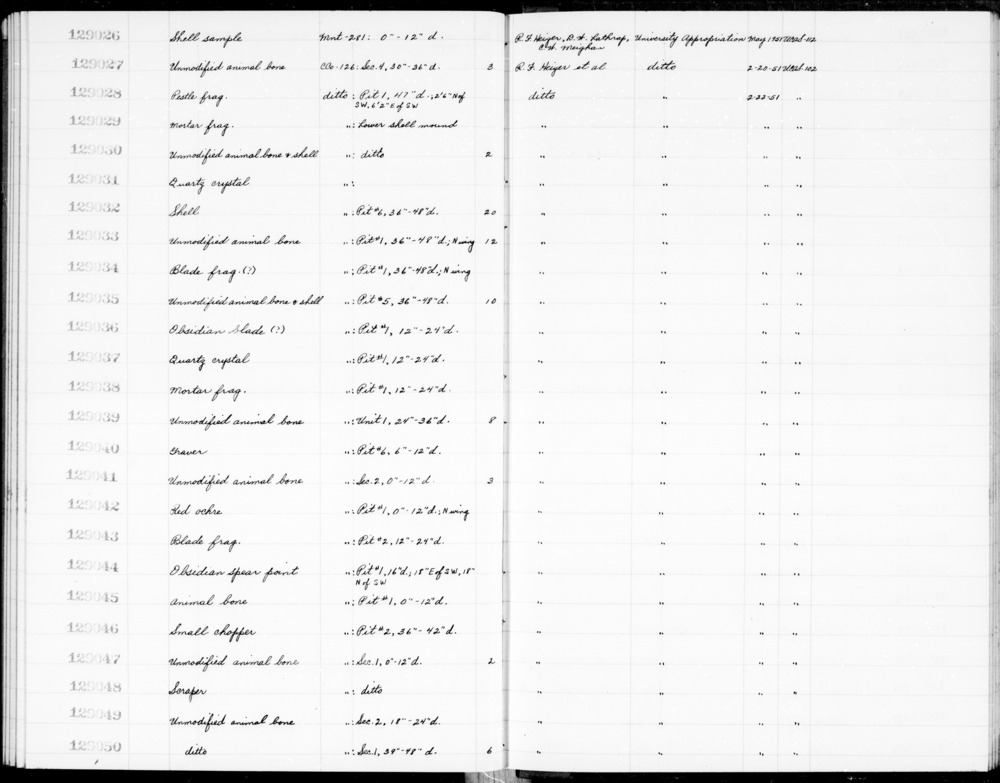 129026 Shell sample Mnt-281: 0"-12" d. R. F. Heizer, D. W. Lathrap, University Appropriation May 1951 UCAS-112
C. W. Meighan
129027 Unmodified animal bone CCo-126: Sec. 4, 30"-36" d. 3 R. F. Heizer et al ditto 2-20-51 UCAS-102
129028 Pestle frag. ditto: Pit 1, 47" d.; 2'6" N of ditto " 2-22-51 "
SW, 6'2" E of SW
129029 Mortar frag. ": Lower shell mound " " " "
129030 Unmodified animal bone & shell ": ditto 2 " " " "
129031 Quartz crystal ": " " " "
129032 Shell ": Pit #6, 36"-48" d. 20 " " " "
129033 Unmodified animal bone ": Pit #1, 36"-48" d.; N wing 12 " " " "
129034 Blade frag. (?) ": Pit #1, 36"-48" d.; N wing " " " "
129035 Unmodified animal bone & shell ": Pit #5, 36"-48" d. 10 " " " "
129036 Obsidian blade (?) ": Pit #1, 12"-24" d. " " " "
129037 Quartz crystal ": Pit #1, 12"-24" d. " " " "
129038 Mortar frag. ": Pit #1, 12"-24" d. " " " "
129039 Unmodified animal bone ": Unit 1, 24"-36" d. 8 " " " "
129040 Graver ": Pit #6, 6"-12" d. " " " "
129041 Unmodified animal bone ": Sec. 2, 0"-12" d. 3 " " " "
129042 Red ochre ": Pit #1, 0"-12" d.; N wing " " " "
129043 Blade frag. ": Pit #2, 12"-24" d. " " " "
129044 Obsidian spear point ": Pit #1, 16" d.; 18" E of SW, 18" " " " "
N of SW
129045 Animal bone ": Pit #1, 0"-12" d. " " " "
129046 Small chopper ": Pit #2, 36"-42" d. " " " "
129047 Unmodified animal bone ": Sec. 1, 0"-12" d. 2 " " " "
129048 Scraper ": ditto " " " "
129049 Unmodified animal bone ": Sec. 2, 18"-24" d. " " " "
129050 ditto ": Sec. 1, 39"-48" d. 6 " " " "